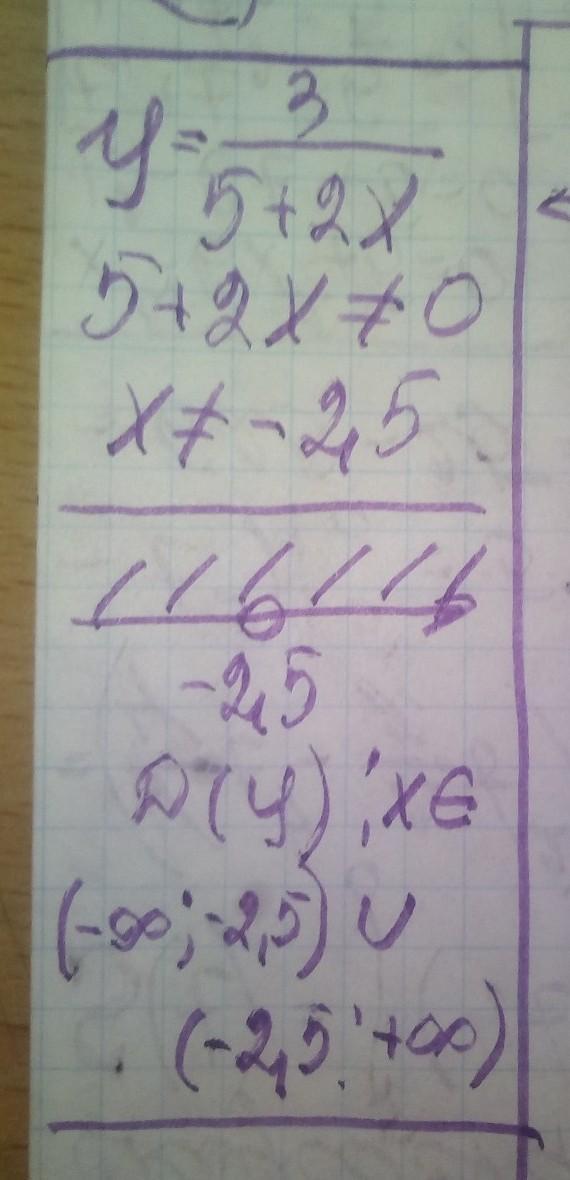 y = 3/(5+2x)
5+2x≠0
x≠-2,5
-2,5
D(y) ; x∈
(-∞; -2,5) ∪
(-2,5 ; +∞)